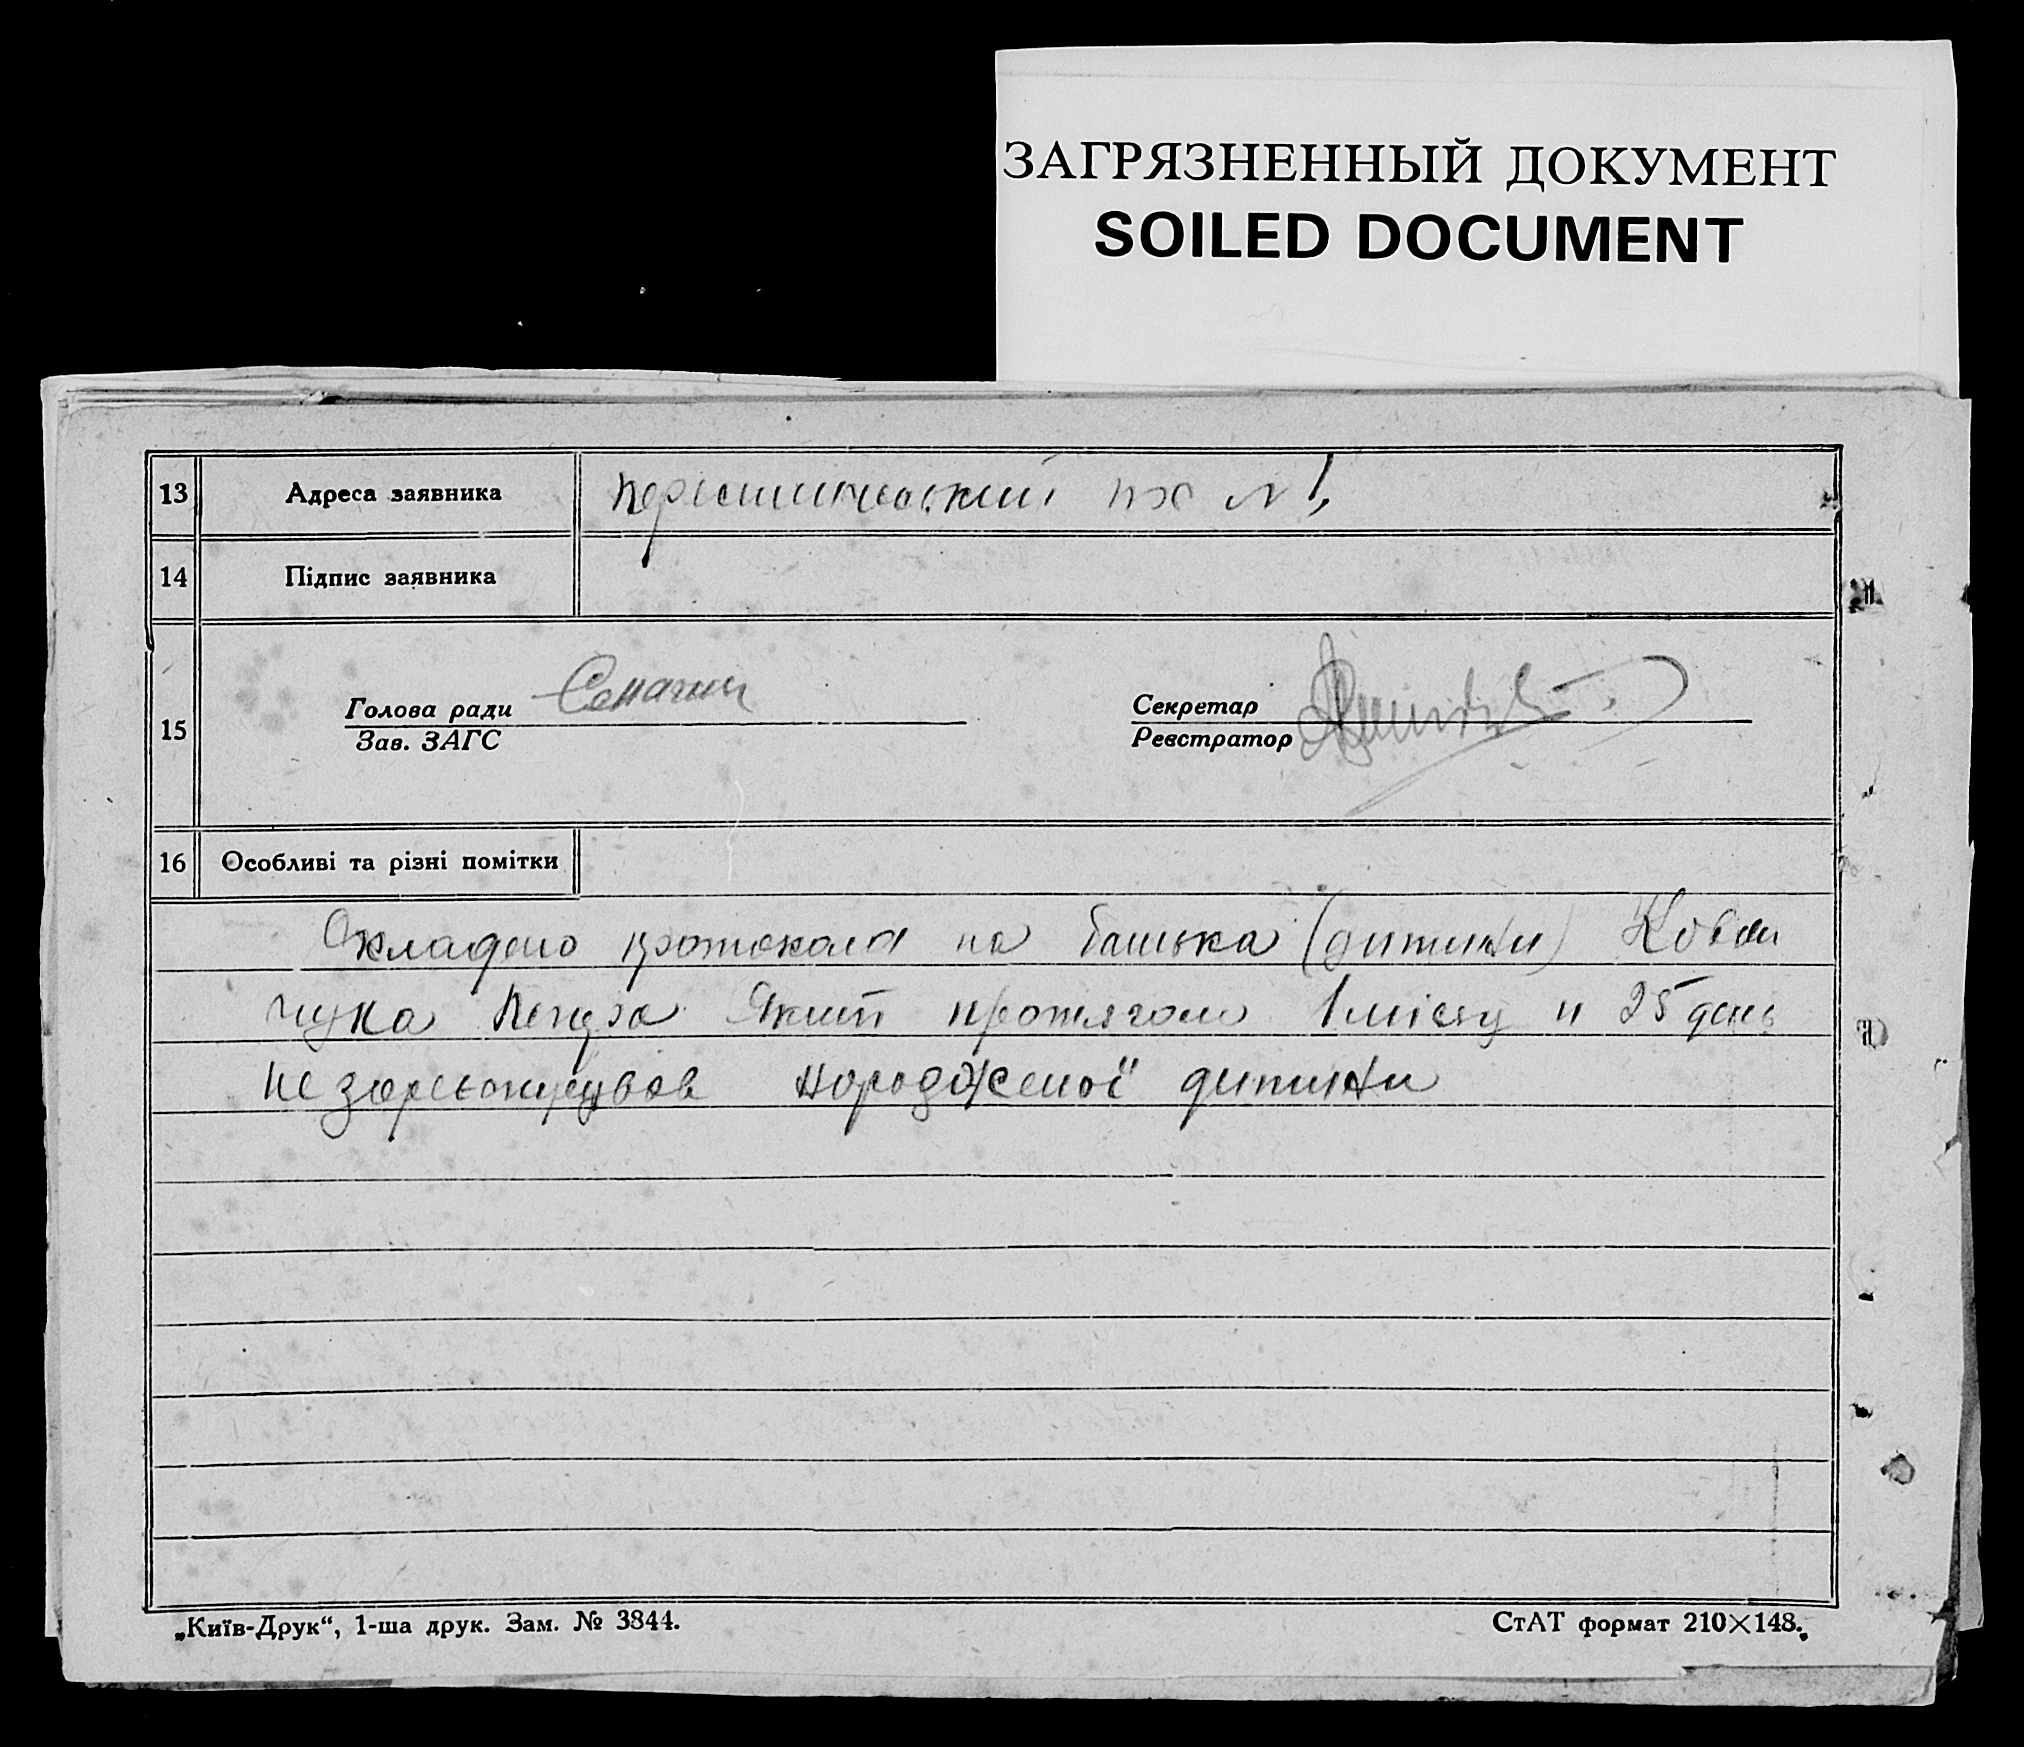 ЗАГРЯЗНЕННЫЙ ДОКУМЕНТ
SOILED DOCUMENT
13 Адреса заявника
14 Підпис заявника
Голова ради Секретар
15
Зав. ЗАГС Реєстратор
16 Особливі та різні помітки
Складено протокола на батька (дитини) Ковал
чука Який протягом 1 місяц и 25 день
не народженої дитини
„Київ-Друк“, 1-ша друк. Зам. № 3844. СтАТ формат 210×148.